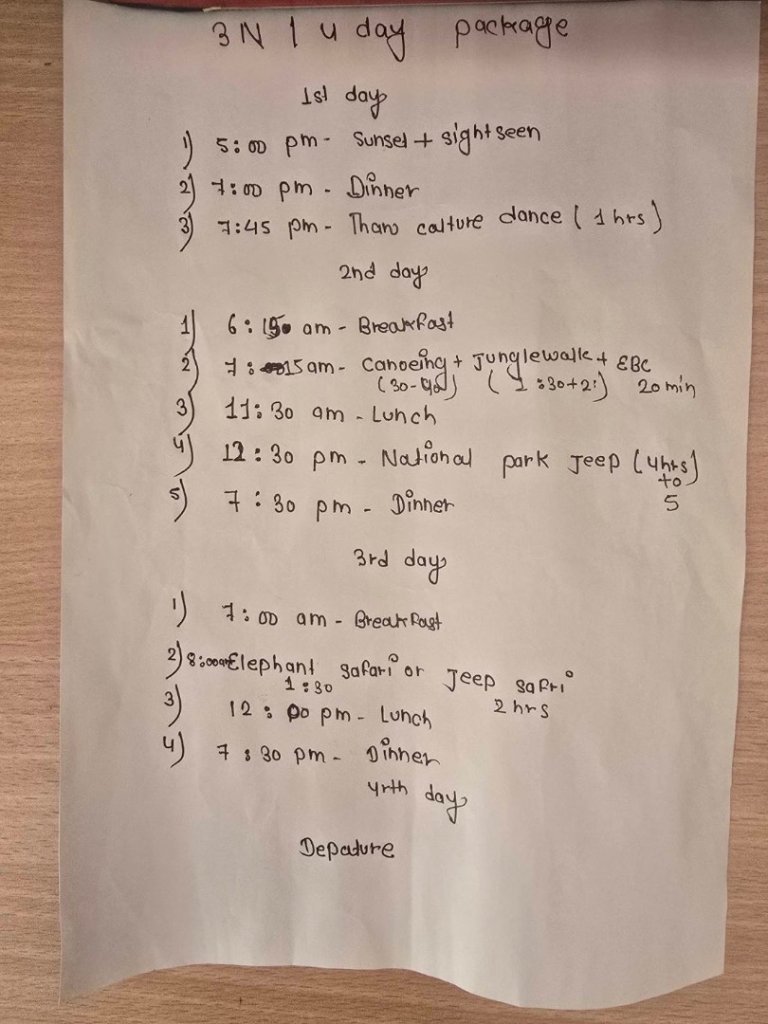 3N / 4 day package
1st day
1) 5:00 pm - Sunset + sightseen
2) 7:00 pm - Dinner
3) 7:45 pm - Tharu calture dance ( 1 hrs )
2nd day
1) 6:15 am - Breakfast
2) 7:15 am - Canoeing + Junglewalk + EBC
(30-40) ( 1:30+2:) 20 min
3) 11:30 am - Lunch
4) 12:30 pm - National park Jeep (4hrs)
to
5) 7:30 pm - Dinner 5
3rd day
1) 7:00 am - Breakfast
2) 8:00am Elephant safari or Jeep safri
1:30 2 hrs
3) 12:00 pm - Lunch
4) 7:30 pm - Dinner
4rth day
Depature